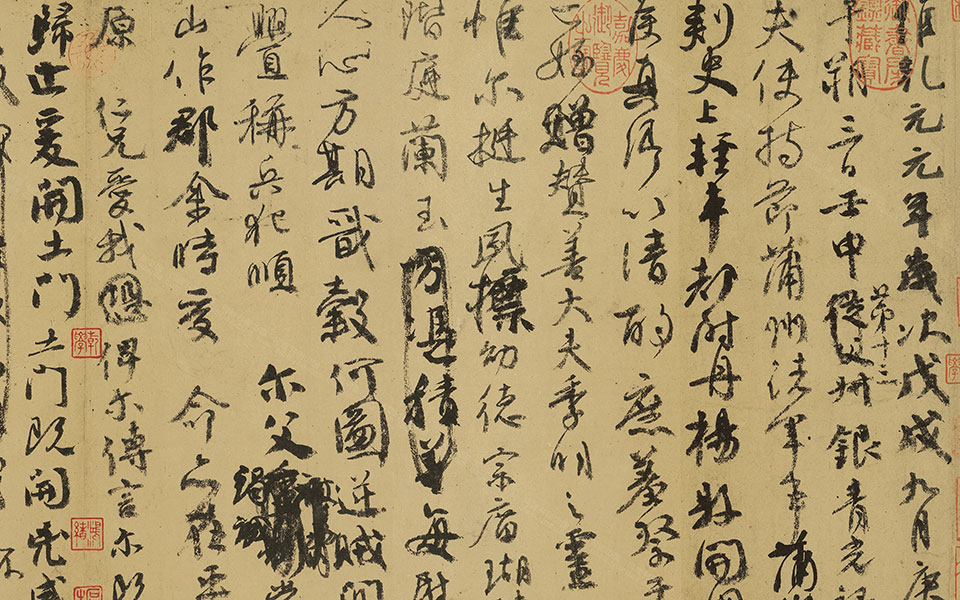 維乾元元年歲次戊戌九月庚
午朔三日壬申第十三從父銀青光祿
夫使持節蒲州諸軍事蒲州
刺史上輕車都尉丹楊縣開國
侯真卿以清酌庶羞祭于
亡姪贈贊善大夫季明之靈
惟尔挺生夙標幼德宗廟瑚
階庭蘭玉方憑積善每慰
人心方期戩穀何圖逆賊間
釁稱兵犯順尔父竭誠常
山作郡余時受命亦在平
原仁兄愛我恐俾尔傳言尔既
歸止爰開土門土門既開兇威
嘉慶御覽之寶